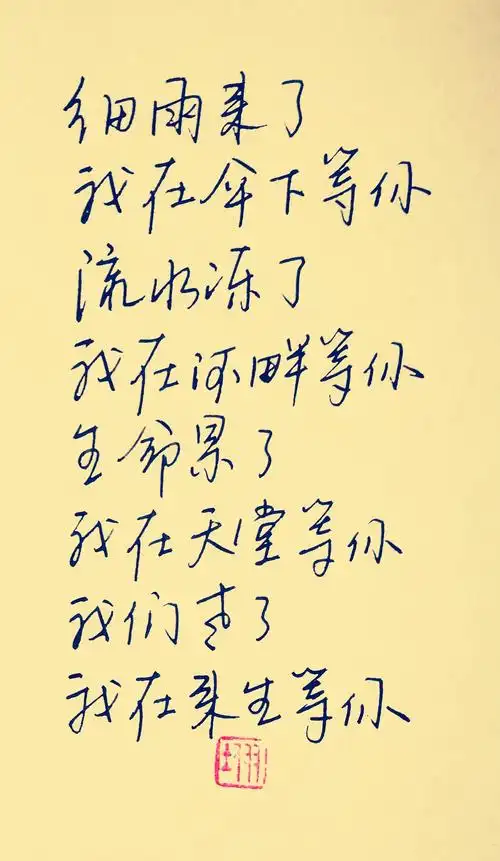 细雨来了
我在伞下等你
流水冻了
我在河畔等你
生命累了
我在天堂等你
我们老了
我在来生等你